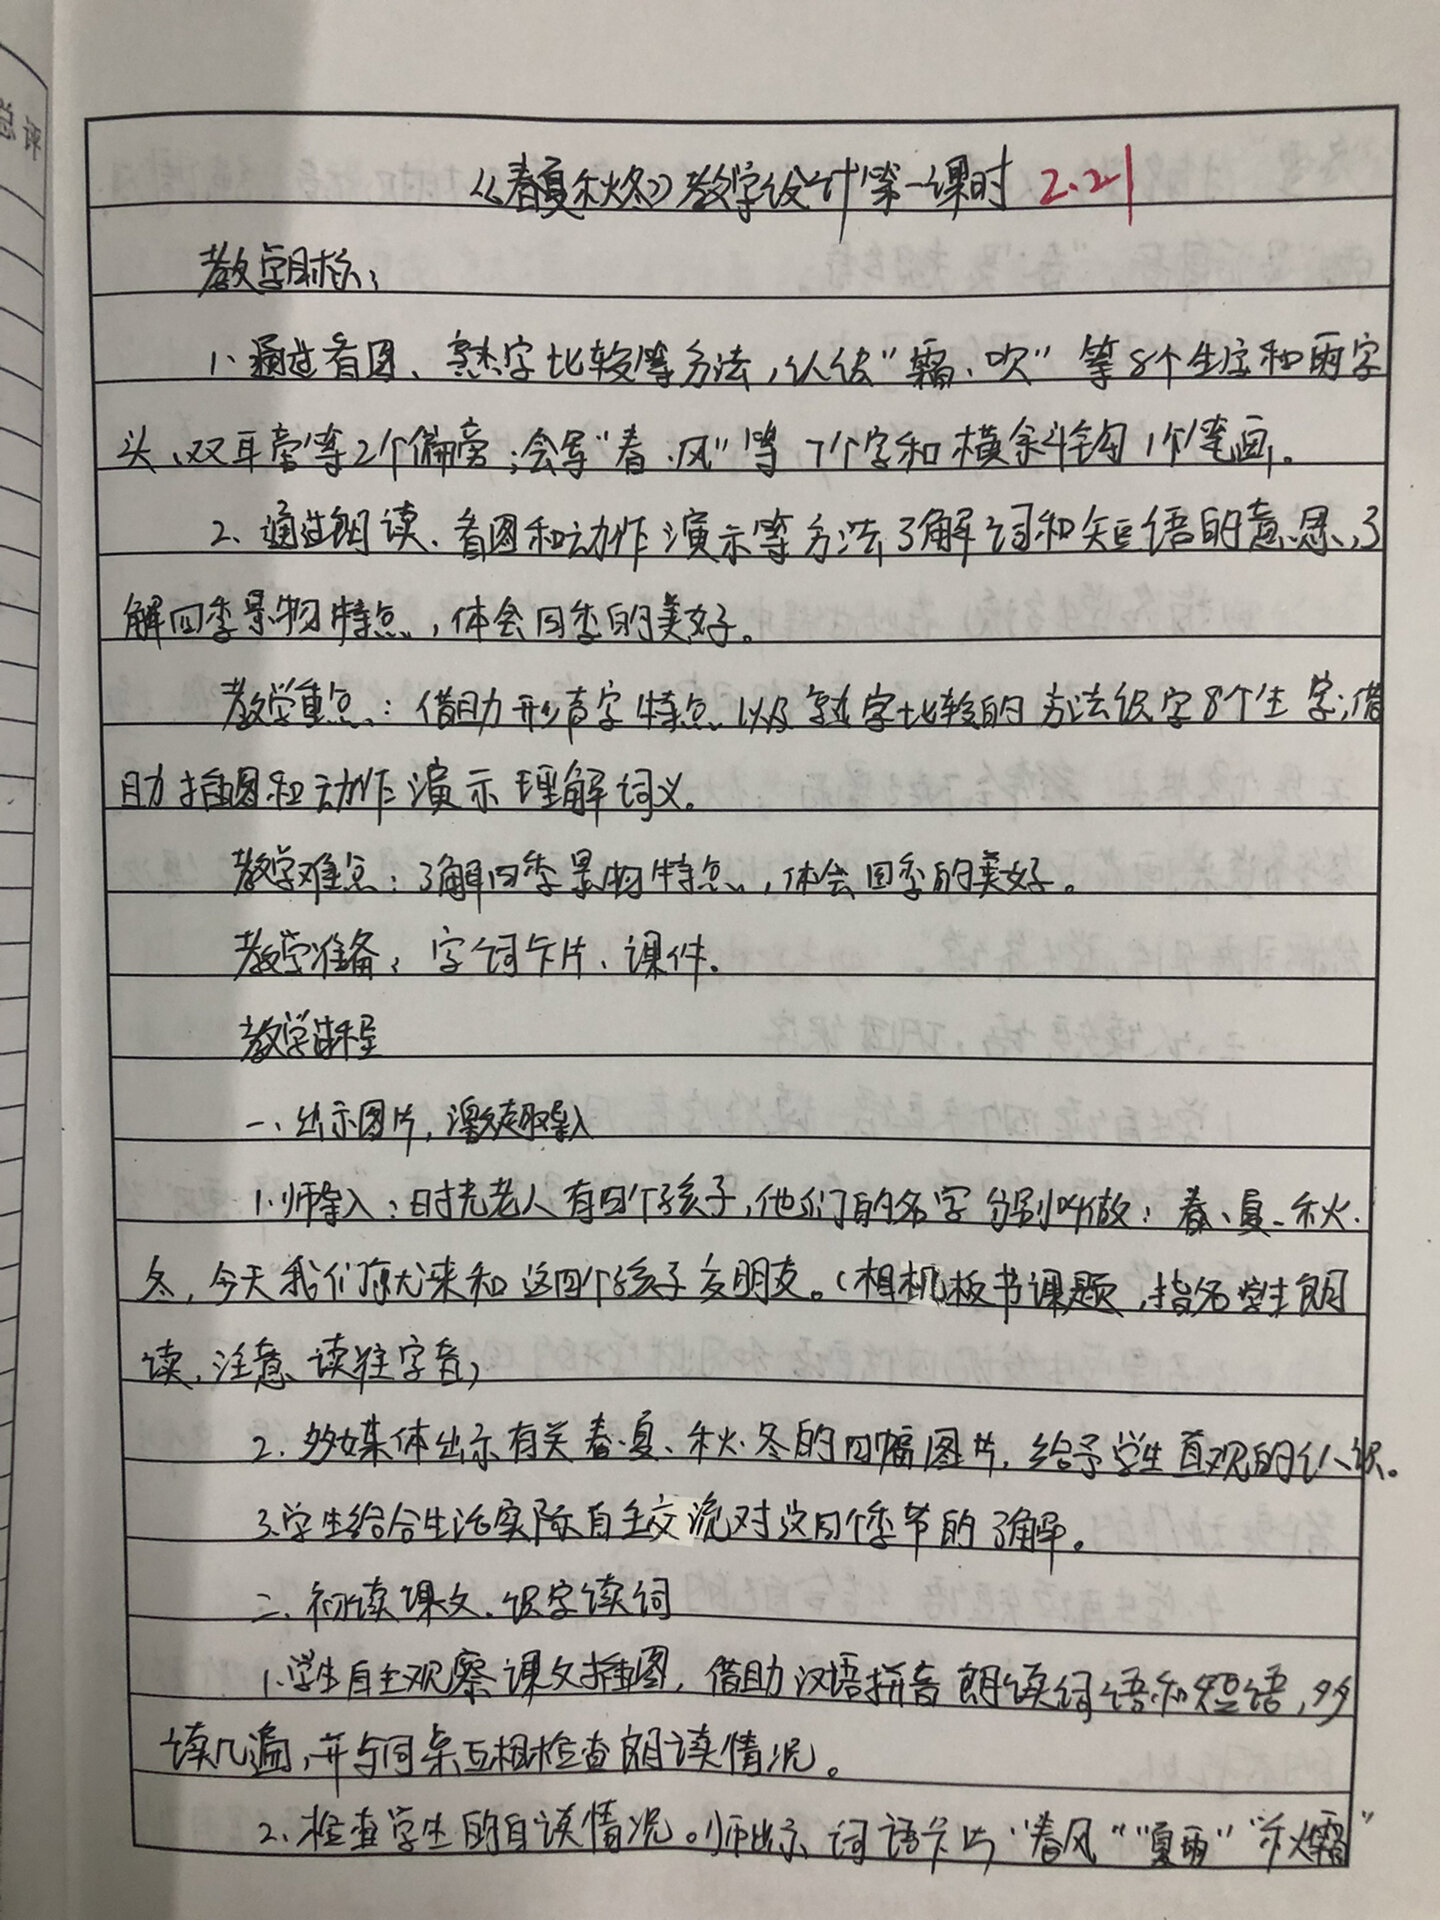 《春夏秋冬》教学设计第一课时 2.21
教学目标：
1、通过看图、熟字比较等方法，认识“霜、吹”等8个生字和雨字
头、双耳旁等2个偏旁；会写“春、风”等7个字和横斜钩1个笔画。
2、通过朗读、看图和动作演示等方法了解词和短语的意思，了
解四季景物特点，体会四季的美好。
教学重点：借助形声字特点以及熟字比较的方法识字8个生字；借
助插图和动作演示理解词义。
教学难点：了解四季景物特点，体会四季的美好。
教学准备：字词卡片、课件。
教学过程
一、出示图片，激趣导入
1.师导入：时光老人有四个孩子，他们的名字分别叫做：春、夏、秋、
冬，今天我们就来和这四个孩子交朋友。（相机板书课题，指名学生朗
读，注意读准字音）
2.多媒体出示有关春、夏、秋、冬的四幅图片，给予学生直观的认识。
3.学生结合生活实际自主交流对这四个季节的了解。
二、初读课文、识字读词
1.学生自主观察课文插图，借助汉语拼音朗读词语和短语，多
读几遍，并与同桌互相检查朗读情况。
2、检查学生的自读情况。师出示词语卡片“春风”“夏雨”“秋霜”
评总